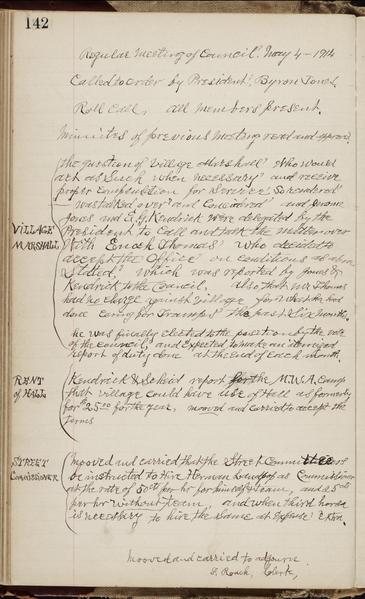 142
Regular Meeting of Council. May 4 - 1914
Called to order by President, Byron Jones.
Roll Call, all members present.
Minutes of previous meeting read and approved.
VILLAGE MARSHALL
The question of Village Marshall who would
act as such when necessary and receive
proper compensation for service, so rendered
was talked over and considered and
Jones and Kendrick were delegated by the
President to call and talk the matter over
with Enoch Thomas who decided to
accept the office on conditions as above
stated, which was reported by Jones &
Kendrick to the Council. also that Mr Thomas
had no charge against village for what he had
done caring for Tramps the past six months.
he was finally elected to the position by the vote
of the council, and expected to make an
report of duty done at the end of each month.
RENT of HALL
Kendrick & report for the M.W.A. Camp
that village could have use of Hall as formerly
for $25.00 for the year, moved and carried to accept the
terms
STREET Commissioner
Mooved and carried that the Street Committee
be instructed to Hire Herman as Commissioner
at the rate of 50¢ per hr for himself & team, and 25¢
per hr without team, and when third horse
is necessary to hire the same at expense extra.
Mooved and carried to adjourn
S. Roach, Clerk,